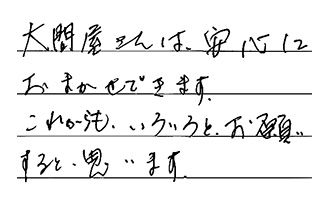 大問屋さんは、安心に
おまかせできます。
これからも、いろいろと、お願い
すると、思います。